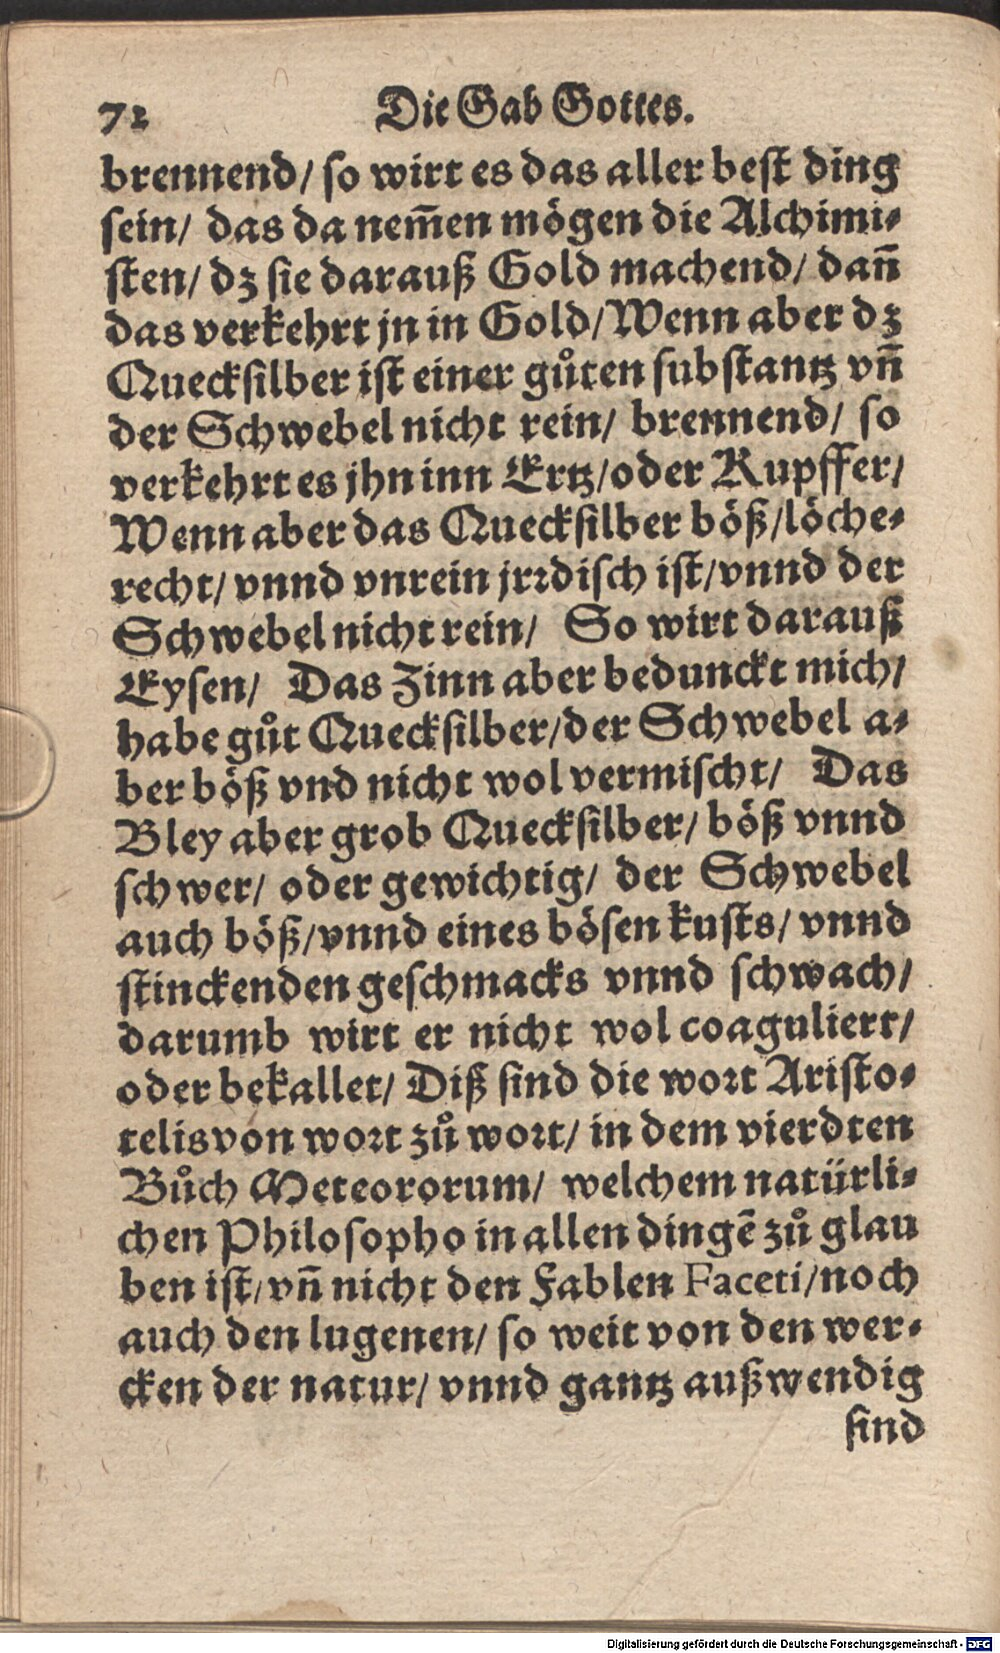 72 Die Gab Gottes.
brennend/ so wirt es das aller best ding
sein/ das da nem̄en mögen die Alchimi-
sten/ dz sie darauß Gold machend/ dañ
das verkehrt jn in Gold/Wenn aber dz
Quecksilber ist einer gůten substantz vñ
der Schwebel nicht rein/ brennend/ so
verkehrt es jhn inn Ertz/oder Kupffer/
Wenn aber das Quecksilber böß/löche-
recht/ vnnd vnrein jrrdisch ist/vnnd der
Schwebel nicht rein/ So wirt darauß
Eysen/ Das Zinn aber bedunckt mich/
habe gůt Quecksilber/der Schwebel a-
ber böß vnd nicht wol vermischt/ Das
Bley aber grob Quecksilber/ böß vnnd
schwer/ oder gewichtig/ der Schwebel
auch böß/vnnd eines bösen kusts/ vnnd
stinckenden geschmacks vnnd schwach/
darumb wirt er nicht wol coaguliert/
oder bekallet/ Diß sind die wort Aristo-
telis von wort zů wort/ in dem vierdten
Bůch Meteororum/ welchem natürli-
chen Philosopho in allen dingẽ zů glau
ben ist/vñ nicht den Fablen Faceti/noch
auch den lugenen/ so weit von den wer-
cken der natur/ vnnd gantz außwendig
sind
Digitalisierung gefördert durch die Deutsche Forschungsgemeinschaft - DFG